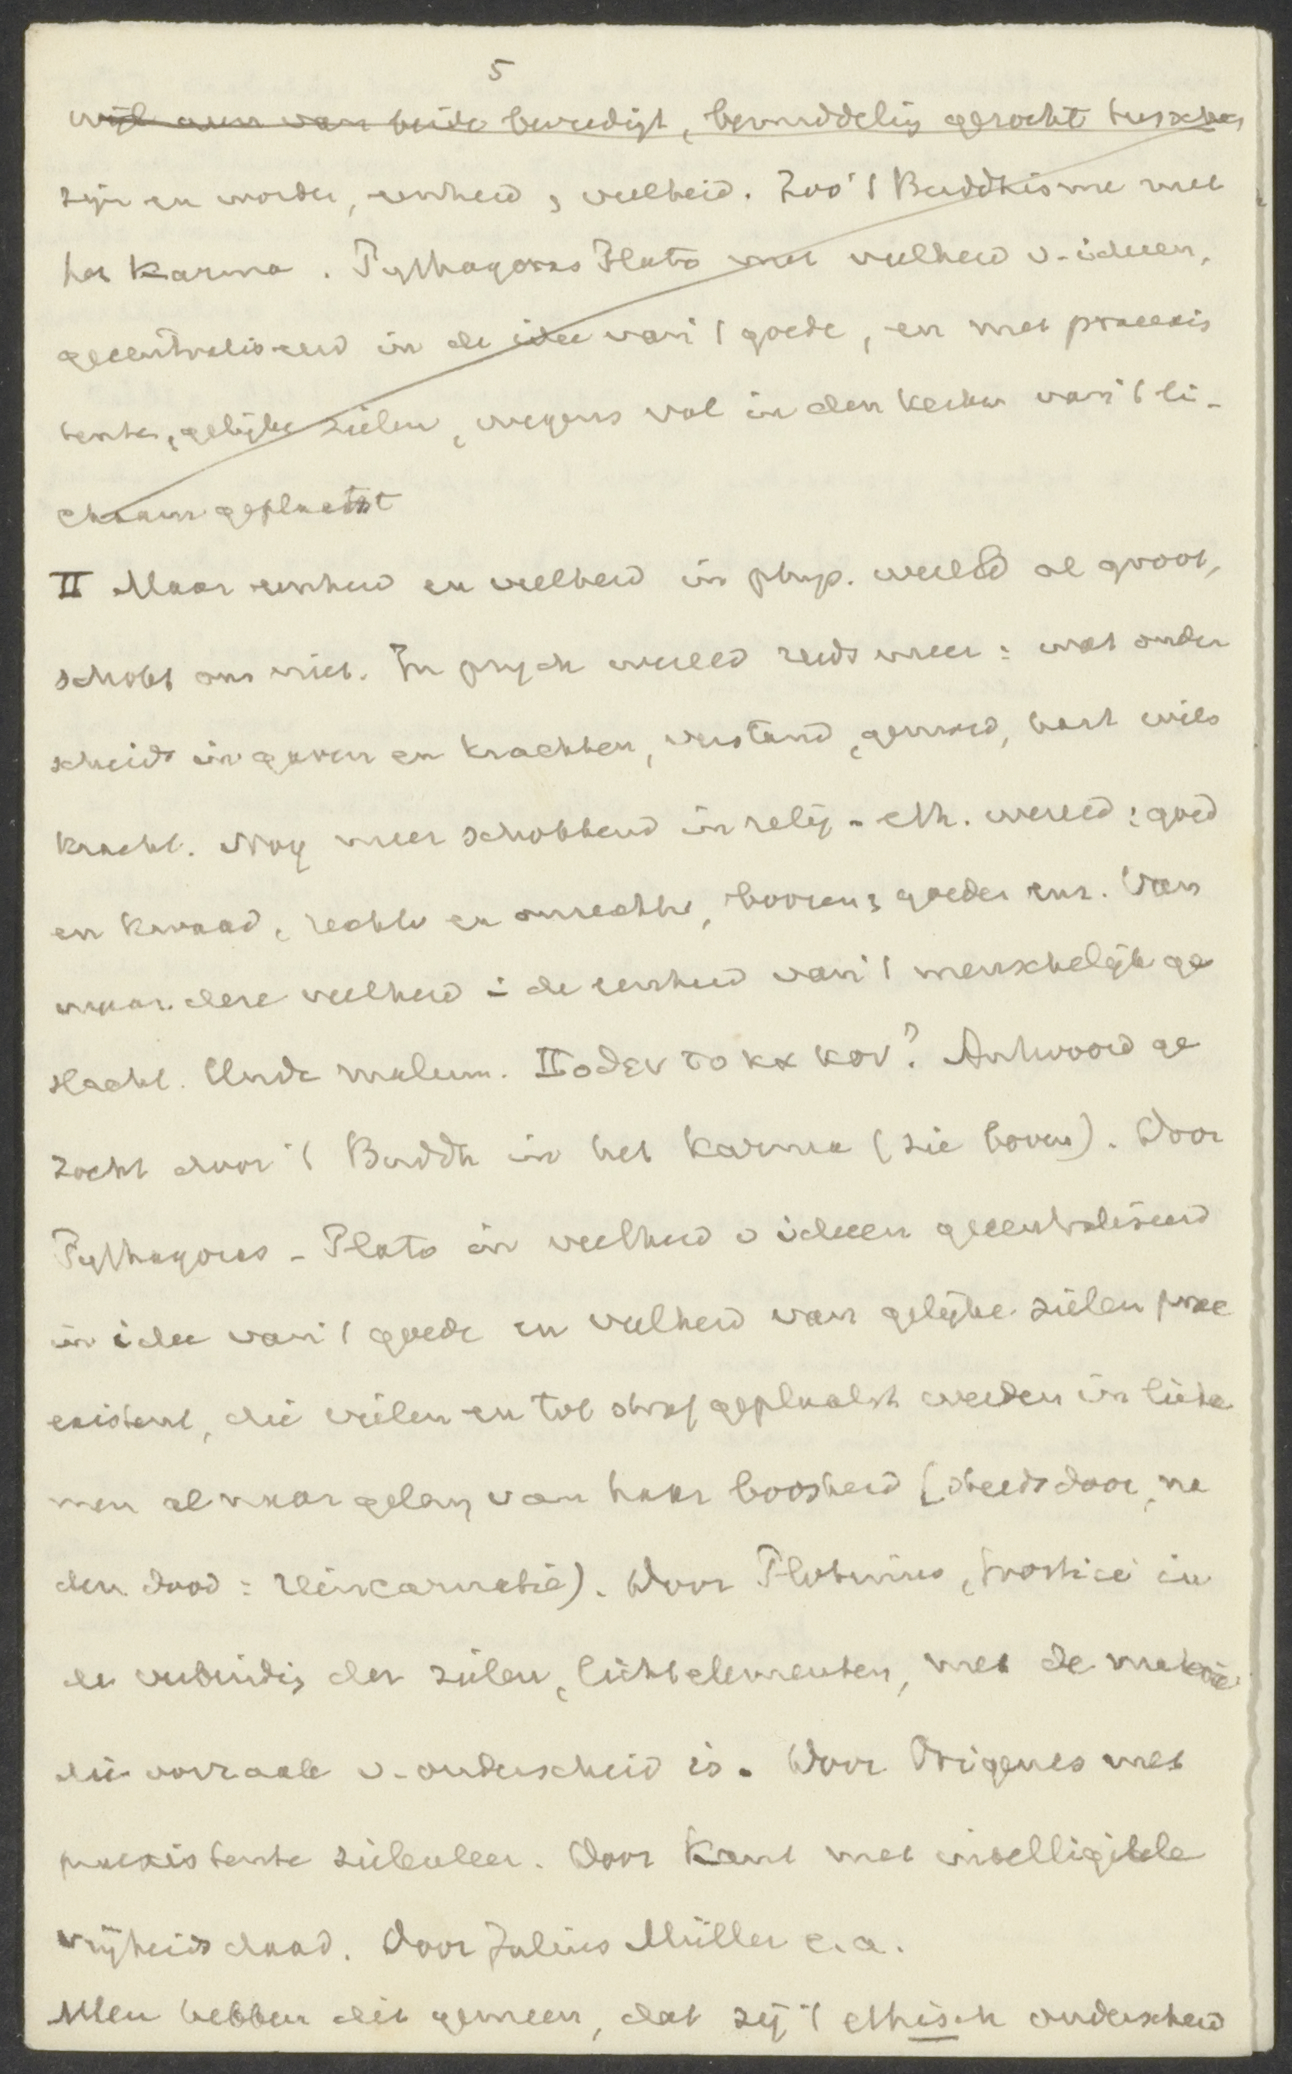 5
wijl geen van beide bevredigt, bemiddeling gezocht tusschen
zijn en worden, eenheid, veelheid. Zoo 't Buddhisme met
het Karma. Pythagoras Plato met veelheid v. ideeen,
gecentraliseerd in de idee van 't goede, en met praeexis
tente, gelijke zielen, wegens val in den kerker van 't li-
chaam geplaatst
II Maar eenheid en veelheid in phys. wereld al groot,
schokt ons niet. In psych wereld reeds meer: wat onder
scheid in gaven en krachten, verstand, gemoed, hart wils
kracht. Nog meer schokkend in relig-eth. wereld: goed
en kwaad, rechtv en onrechtv, boozen, goeden enz. Van
waar deze veelheid i de eenheid van 't menschelijk ge
slacht. Unde malum. Ποθεν το κακον? Antwoord ge
zocht door 't Buddh in het Karma (zie boven). Door
Pythagoras - Plato in veelheid v ideeen gecentraliseerd
in idee van 't goede en veelheid van gelijke zielen prae
existent, die vielen en tot straf geplaatst werden in licha
men al naar gelang van haar boosheid (steeds door, na
den dood: reincarnatie). Door Plotinus, Gnostici in
de verbindig der zielen, lichtelementen, met de materie
die oorzaak v. onderscheid is. Door Origenes met
praexistente zielenleer. Door Kant met intelligibele
vrijheidsdaad. Door Julius Müller e.a.
Allen hebben dit gemeen, dat zij 't ethisch onderscheid